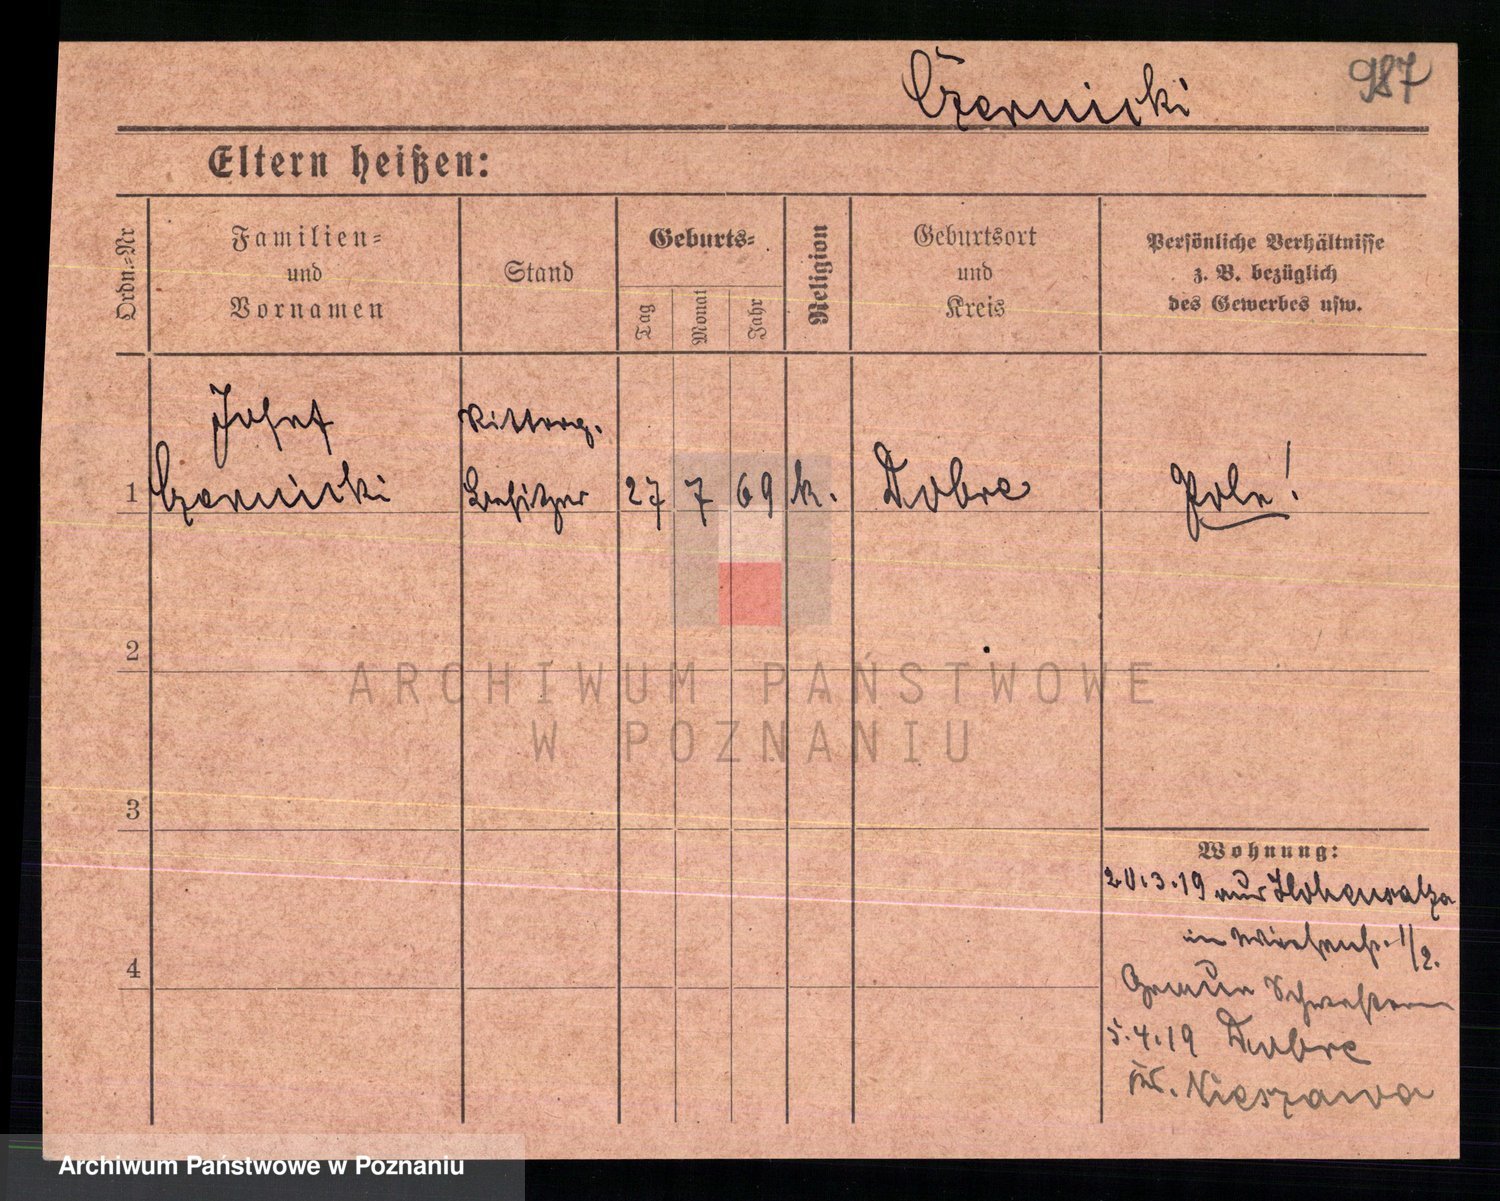 Czernicki
987
Eltern heißen:
Ordn.-Nr
Familien-
und
Vornamen
Stand
Geburts-
Tag
Monat
Jahr
Religion
Geburtsort
und
Kreis
Persönliche Verhältnisse
z. B. bezüglich
des Gewerbes usw.
Josef
Ritterg.
1 Czernicki Besitzer 27 7 69 k. Dobre Pole!
2
3
4
Wohnung:
20.3.19 aus Hohensalza
in 1/2.
Graue Schwestern
5.4.19 Dobre
Kr. Nieszawa
ARCHIWUM PAŃSTWOWE
W POZNANIU
Archiwum Państwowe w Poznaniu